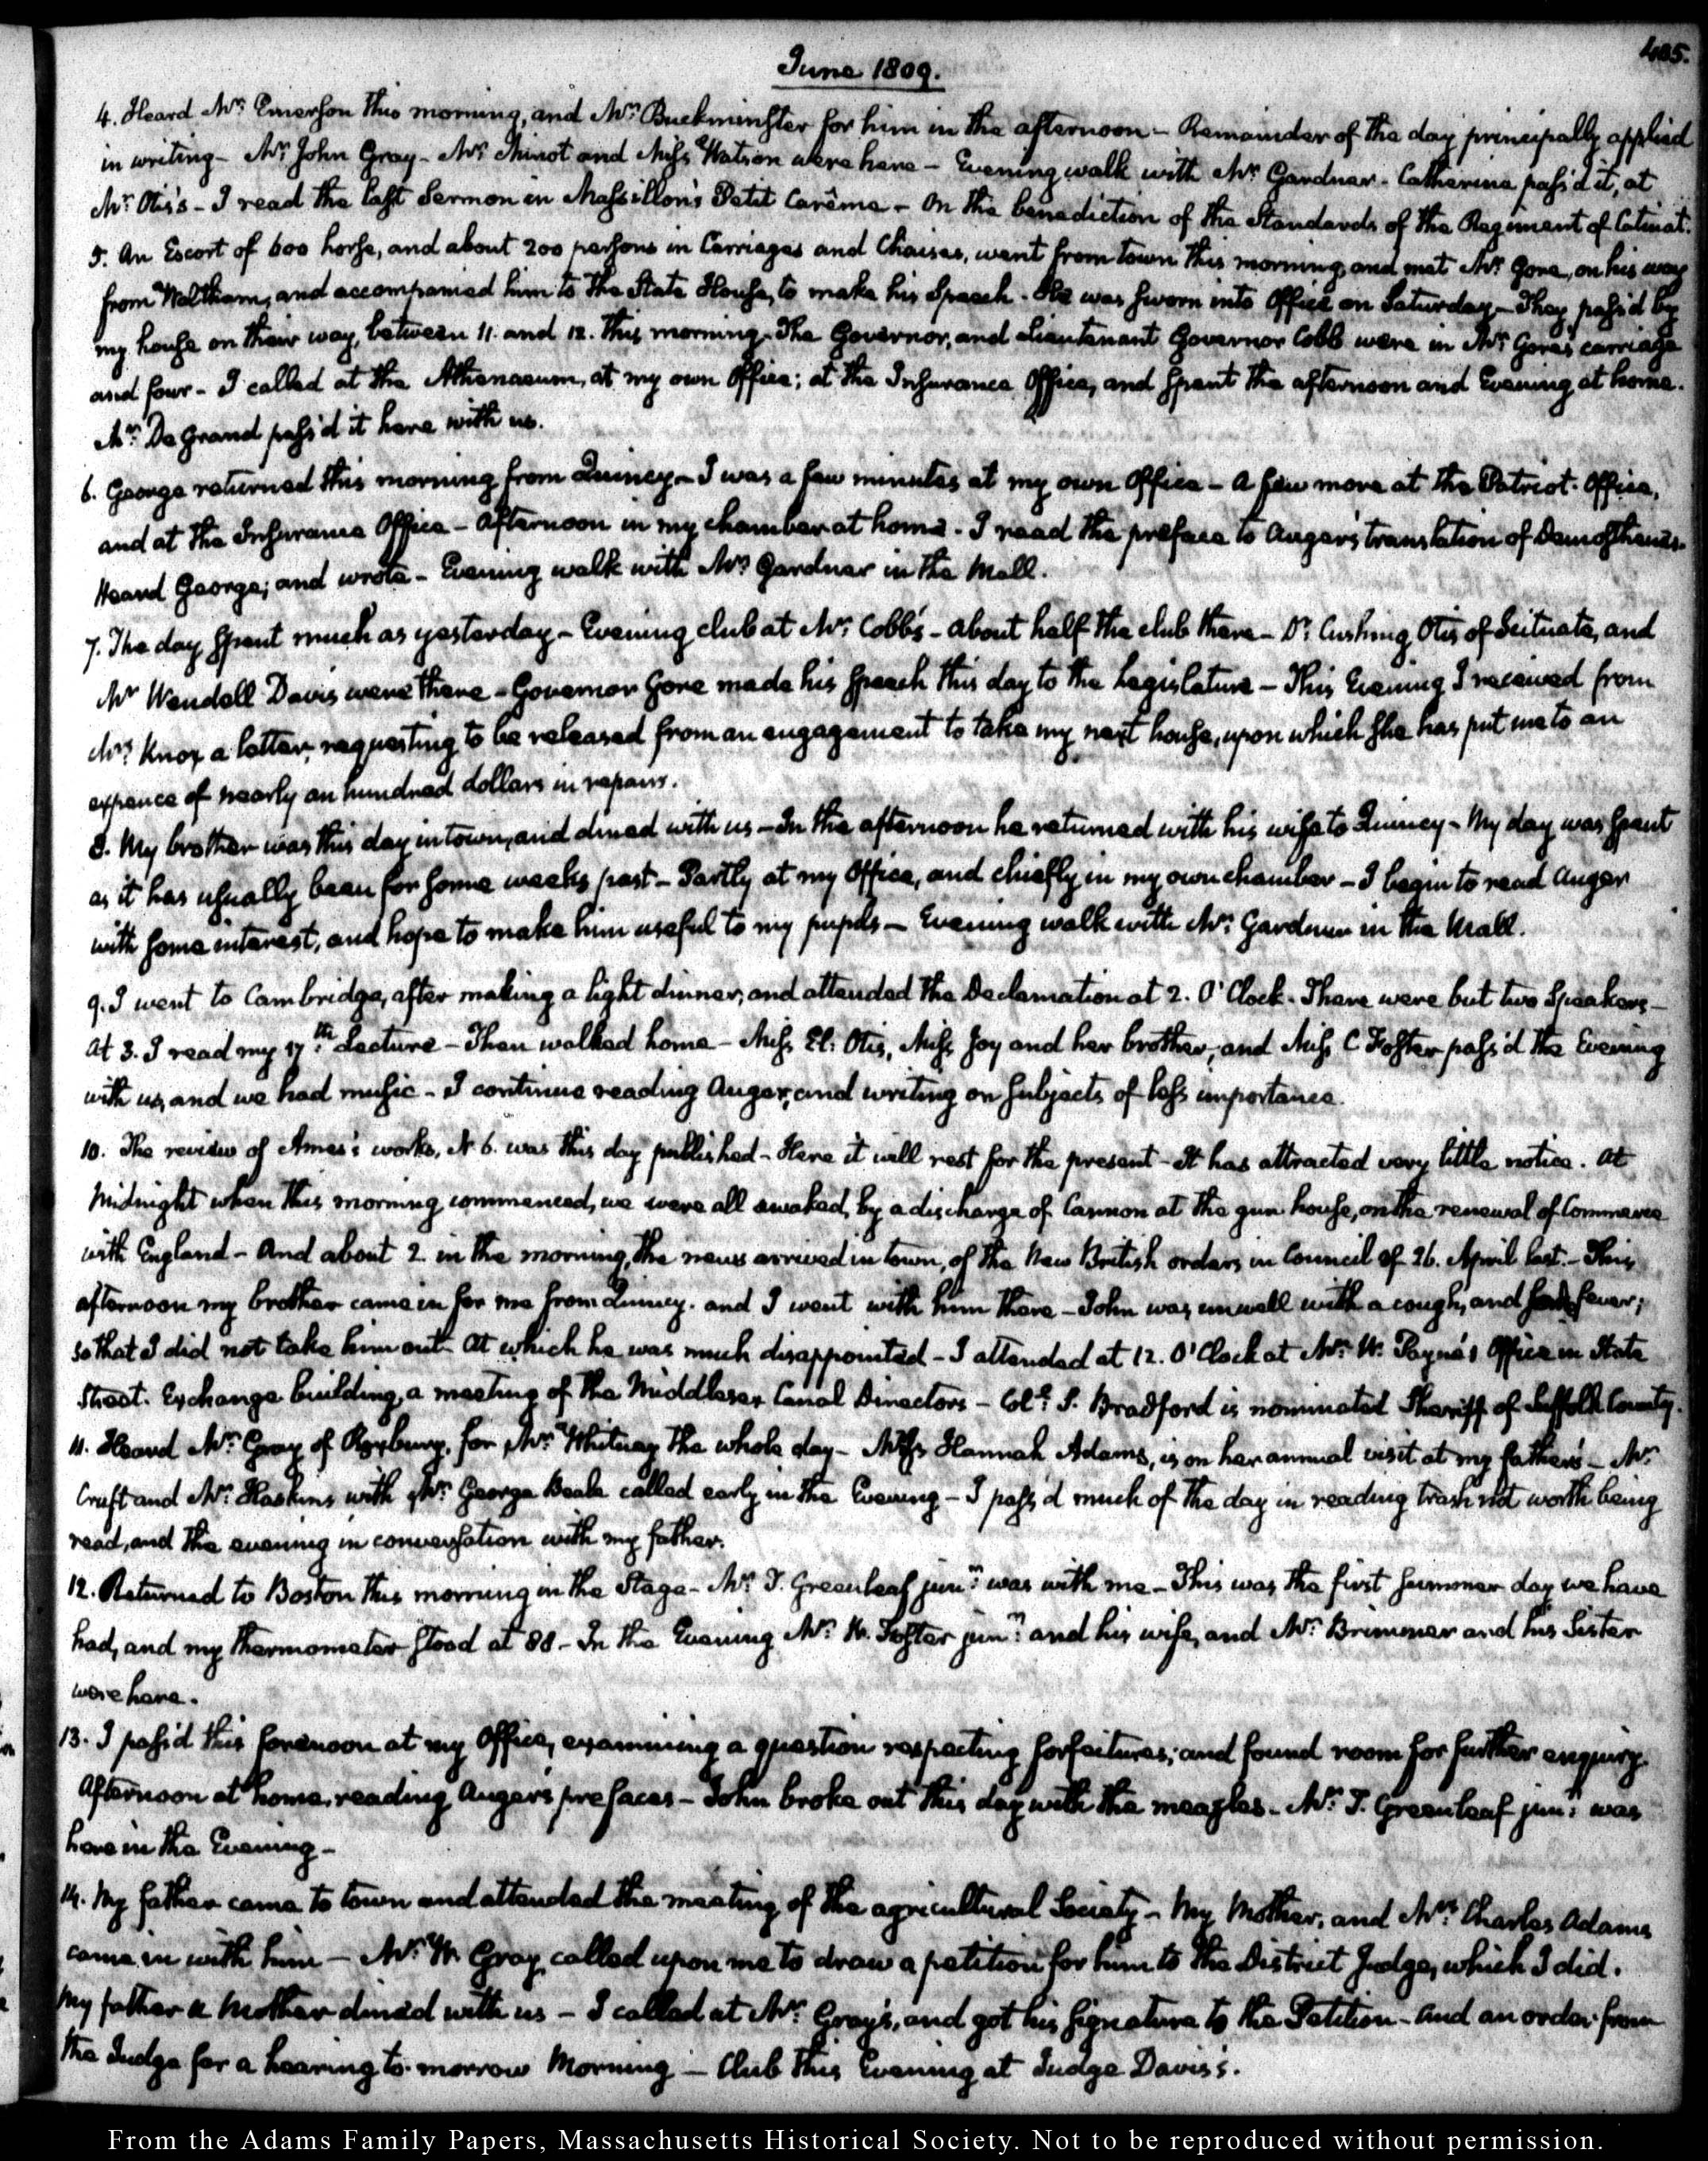 405.
June 1809.
4. Heard Mr. Emerson this morning, and Mr. Buckminster for him in the afternoon - Remainder of the day principally applied
in writing - Mr. John Gray - Mr. Minot and Miss Watson were here - Evening walk with Mr. Gardner. Catherine pass'd it, at
Mr. Otis's - I read the last Sermon in Massillon's Petit Carême - On the benediction of the Standards of the Regiment of Catinat.
5. An Escort of 600 horse, and about 200 persons in Carriages and Chaises, went from town this morning, and met Mr. Gore, on his way
from Waltham, and accompanied him to the State House, to make his Speech. He was sworn into Office on Saturday - They pass'd by
my house on their way, between 11. and 12. this morning. The Governor, and Lieutenant Governor Cobb were in Mr. Gore's carriage
and four - I called at the Athenaeum, at my own Office; at the Insurance Office, and spent the afternoon and Evening at home.
Mr. De Grand pass'd it here with us.
6. George returned this morning from Quincy - I was a few minutes at my own Office - A few more at the Patriot-Office,
and at the Insurance Office - Afternoon in my chamber at home - I read the preface to Auger's translation of Demosthenes.
Heard George; and wrote - Evening walk with Mr. Gardner in the Mall.
7. The day spent much as yesterday - Evening club at Mr. Cobb's - about half the club there - Dr. Cushing Otis of Scituate, and
Mr Wendell Davis were there - Governor Gore made his speech this day to the Legislature - This Evening I received from
Mrs. Knox a letter, requesting to be released from an engagement to take my next house, upon which she has put me to an
expence of nearly an hundred dollars in repairs.
8. My brother was this day in town, and dined with us - In the afternoon he returned with his wife to Quincy - My day was spent
as it has usually been for some weeks past - Partly at my Office, and chiefly in my own chamber - I begin to read Auger
with some interest, and hope to make him useful to my pupils - Evening walk with Mr. Gardner in the Mall.
9. I went to Cambridge, after making a light dinner; and attended the Declamation at 2. O'Clock. There were but two Speakers -
At 3. I read my 17th. Lecture - Then walked home - Miss El: Otis, Miss Joy and her brother, and Miss C Foster pass'd the Evening
with us, and we had music - I continue reading Auger, and writing on subjects of less importance.
10. The review of Ames's works, N 6. was this day published - Here it will rest for the present - It has attracted very little notice. At
Midnight when this morning commenced, we were all awaked, by a discharge of Cannon at the gun house, on the renewal of Commerce
with England - And about 2 in the morning, the news arrived in town, of the New British orders in Council of 26. April last. - This
afternoon my brother came in for me from Quincy. and I went with him there - John was unwell with a cough, and fever;
so that I did not take him out - At which he was much disappointed - I attended at 12. O'Clock at Mr. W. Payne's Office in State
Street. Exchange building, a meeting of the Middlesex Canal Directors - Coll. S. Bradford is nominated Sheriff of Suffolk County.
11. Heard Mr. Gray of Roxbury, for Mr. Whitney the whole day - Miss Hannah Adams, is on her annual visit at my father's - Mr.
Cruft and Mr. Haskins with Mr. George Beale called early in the Evening - I pass'd much of the day in reading trash not worth being
read, and the evening in conversation with my father.
12. Returned to Boston this morning in the Stage - Mr. T. Greenleaf junr. was with me - This was the first summer day we have
had, and my thermometer stood at 88 - In the Evening Mr. W. Foster junr. and his wife, and Mr. Brimmer and his Sister
were here.
13. I pass'd this forenoon at my Office, examining a question respecting forfeitures; and found room for further enquiry.
Afternoon at home, reading Auger's prefaces - John broke out this day with the meazles - Mr. T. Greenleaf junr. was
here in the Evening -
14. My father came to town and attended the meeting of the agricultural Society - My Mother, and Mrs. Charles Adams
came in with him - Mr. W. Gray called upon me to draw a petition for him to the District Judge, which I did.
My father & Mother dined with us - I called at Mr. Gray's, and got his signature to the Petition - And an order from
the Judge for a hearing to-morrow Morning - Club this Evening at Judge Davis's.
From the Adams Family Papers, Massachusetts Historical Society. Not to be reproduced without permission.